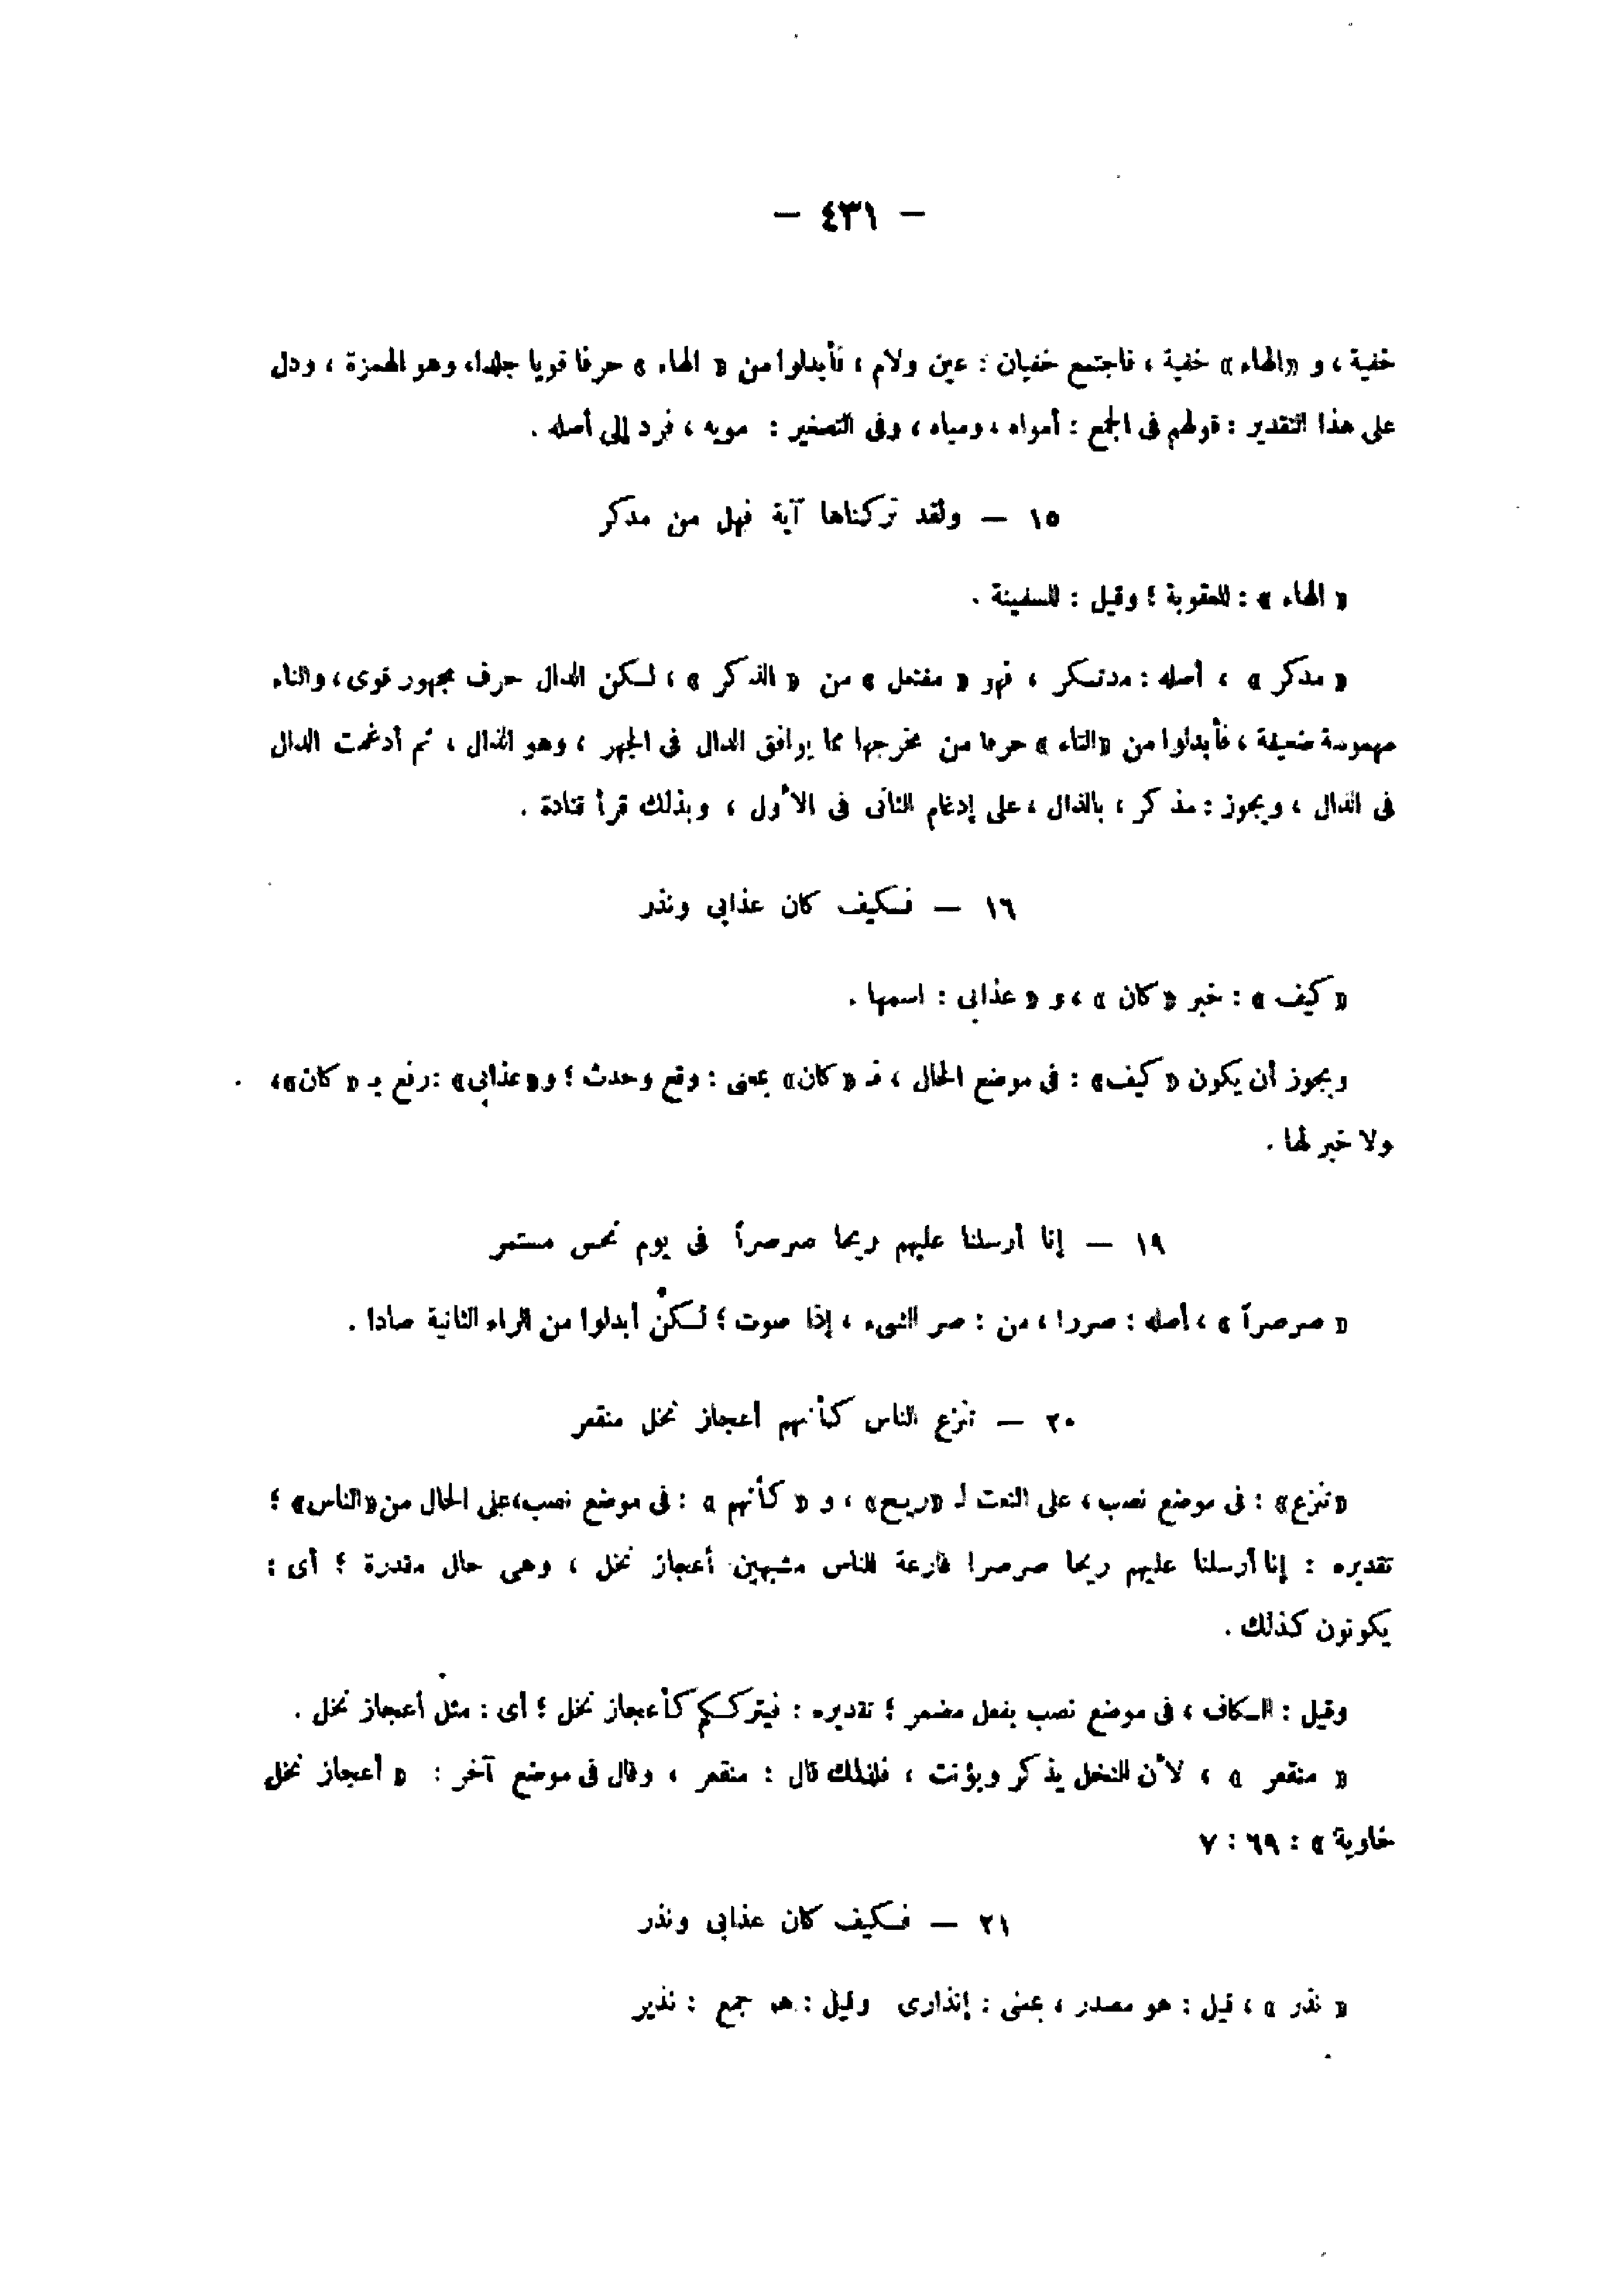 — ٤٣١ —
خفية ، و «الهاء» خفية ، فاجتمع خفيان : عين ولام ، فأبدلوا من « الهاء » حرفا قويا جلدا، وهو الهمزة ، ودل
على هذا التقدير : قولهم فى الجمع : أمواه ، ومياه ، وفى التصغير : مويه ، فرد إلى أصله .
١٥ — ولقد تركناها آية فهل من مدكر
« الهاء » : للعقوبة ؛ وقيل : للسفينة .
« مدكر » ، أصله : مدتكر ، فهو « مفتعل » من « الذكر » ، لكن الدال حرف مجهور قوى ، والتاء
مهموسة ضعيفة ، فأبدلوا من «التاء» حرفا من مخرجها مما يوافق الدال فى الجهر ، وهو الذال ، ثم أدغمت الدال
فى الدال ، ويجوز : مذكر ، بالذال ، على إدغام الثانى فى الأول ، وبذلك قرأ قتادة .
١٦ — فكيف كان عذابى ونذر
« كيف » : خبر « كان » ، و « عذابى : اسمها .
ويجوز أن يكون « كيف» : فى موضع الحال ، فـ « كان» بمعنى : وقع وحدث ؛ و«عذابى» : رفع بـ « كان» ،
ولا خبر لها .
١٩ — إنا أرسلنا عليهم ريحا صرصراً فى يوم نحس مستمر
« صرصراً » ، أصله : صررا ، من : صر الشىء ، إذا صوت ؛ لكن أبدلوا من الراء الثانية صادا .
٢٠ — تنزع الناس كأنهم أعجاز نخل منقعر
«تنزع» : فى موضع نصب ، على النعت لـ «ريح» ، و « كأنهم » : فى موضع نصب، على الحال من «الناس» ؛
تقديره : إنا أرسلنا عليهم ريحا صرصرا نازعة للناس مشبهين أعجاز نخل ، وهى حال مقدرة ؛ أى :
يكونون كذلك .
وقيل : الكاف ، فى موضع نصب بفعل مضمر ؛ تقديره : فيترككم كأعجاز نخل ؛ أى : مثل أعجاز نخل .
« منقعر » ، لأن النخل يذكر ويؤنث ، فلذلك قال : منقعر ، وقال فى موضع آخر : « أعجاز نخل
خاوية » : ٦٩ : ٧
٢١ — فكيف كان عذابى ونذر
« نذر » ، قيل : هو مصدر ، بمعنى : إنذارى وقيل : هو جمع : نذير